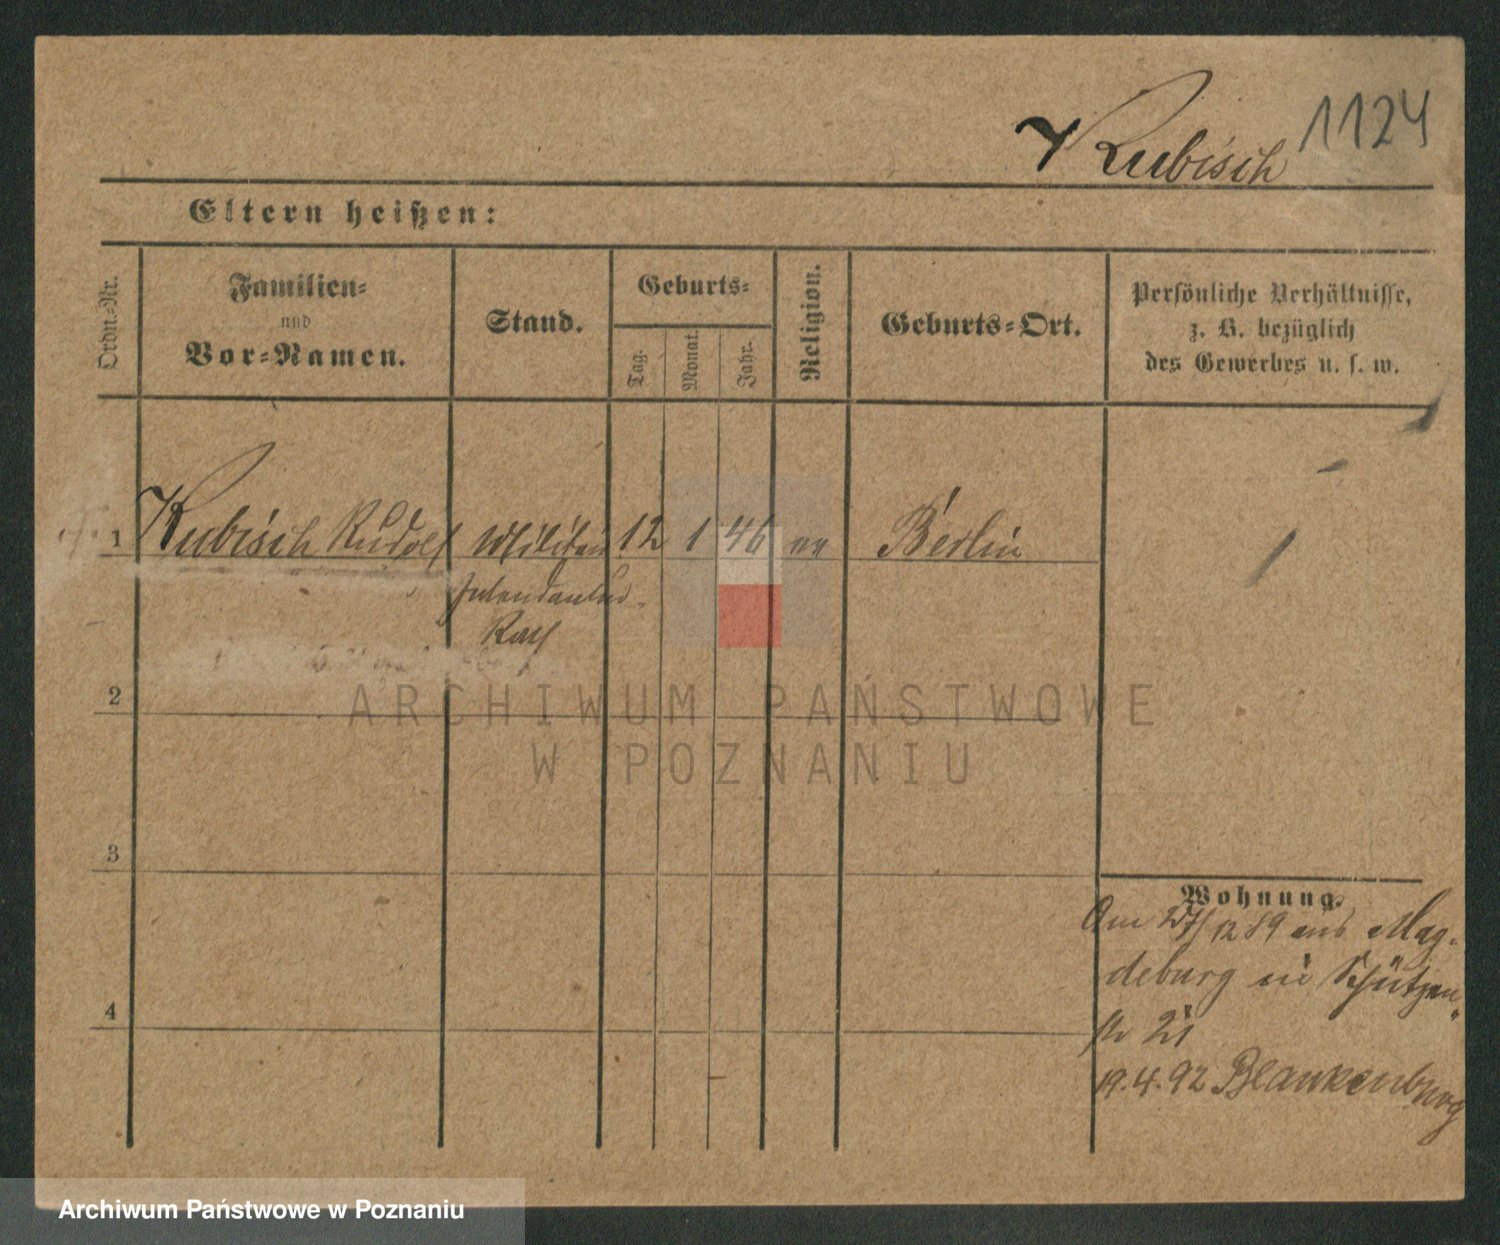 Kubisch 1124
Eltern heißen:
Ordn.-Nr.
Familien-
und
Vor-Namen.
Stand.
Geburts-
Tag.
Monat.
Jahr.
Religion.
Geburts-Ort.
Persönliche Verhältnisse,
z. B. bezüglich
des Gewerbes u. s. w.
1 Kubisch Rudolf Militär 12 1 46 ev Berlin
Intendantur-
Rath
2
ARCHIWUM PAŃSTWOWE
W POZNANIU
3
4
Wohnung.
Am 27/12 89 aus Mag-
deburg in Schützen
str 21
19.4.92 Blankenburg
Archiwum Państwowe w Poznaniu